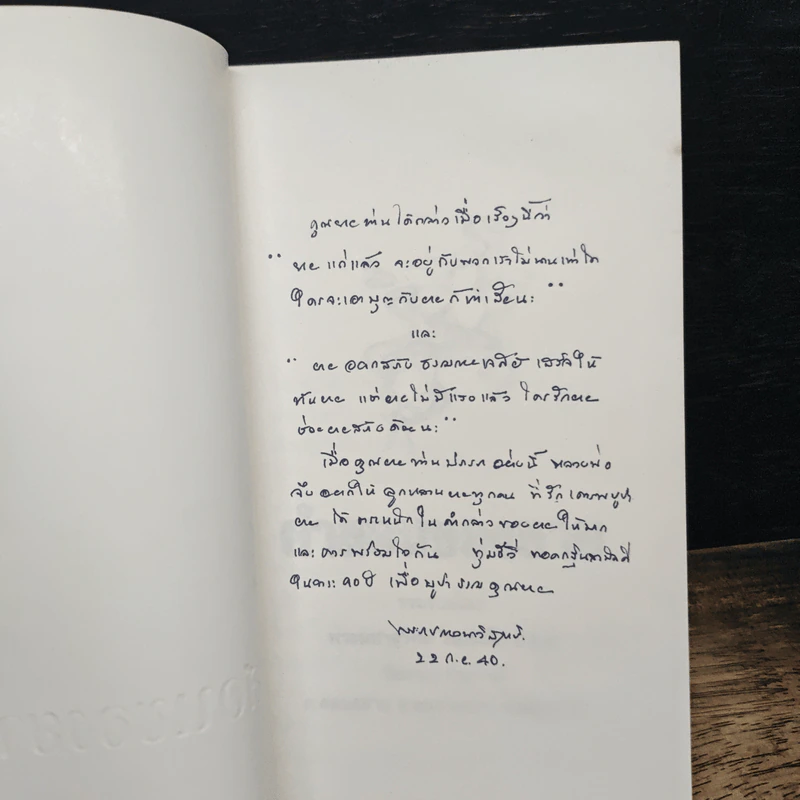 คุณยายท่านได้กล่าวเมื่อเร็วๆนี้ว่า
" ยาย แก่แล้ว จะอยู่กับพวกเราไม่นานเท่าไร
ใครจะเอาบุญกับยาย ก็ทำเสียนะ "
และ
" ยาย อยากสร้าง ให้
ทันยาย แต่ยายไม่มีแรงแล้ว ใครรักยาย
ช่วยยายสร้างด้วยนะ "
เมื่อคุณยายท่านปรารภ อย่างนี้ หลวงพ่อ
จึงอยากให้ ลูกหลานยายทุกคน ที่รักเคารพบูชา
ยาย ได้ตระหนักใน คำกล่าวของยายให้มาก
และ ควรพร้อมใจกัน ทุ่มชีวี ทอดกฐินสามัคคี
ในวาระ ๑๐ปี เพื่อบูชาธรรมคุณยาย
22 ก.ย. 40.